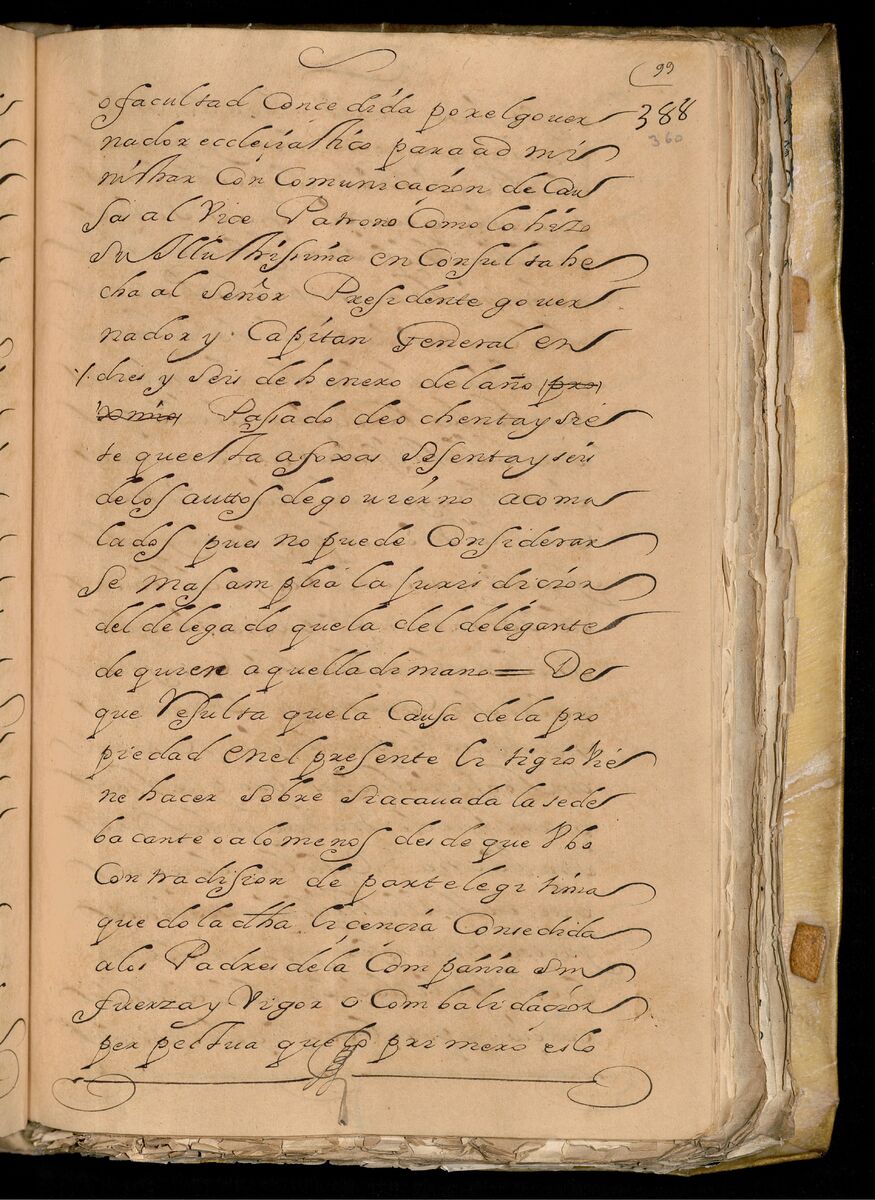 99
388
360
o facultad Concedida por el gouer
nador ecclesiastico para ad mi
nistrar Con Comunicaçion de Cau
sas al Vice Patrono Como lo hizo
su Illustrissima en Consulta he
cha al señor Presidente gouer
nador y Capitan General en
dies y seis de henero del año pro
ximo Passado de ochenta y sie
te que esta a foxas sesenta y seis
de los auttos de gouierno acomu
lados pues no puede Considerar
se mas amplia la jurisdicion
del delegado que la del delegante
de quien aquella dimana = De
que Resulta que la Causa de la pro
piedad en el presente litigio vie
ne hacer sobre si acauada la sede
bacante o a lo menos desde que Vbo
Contradision de parte legitima
quedo la dha liçençia Consedida
a los Padres de la Compañia sin
fuerza y Vigor o Combalidaçion
perpectua que lo primero es lo